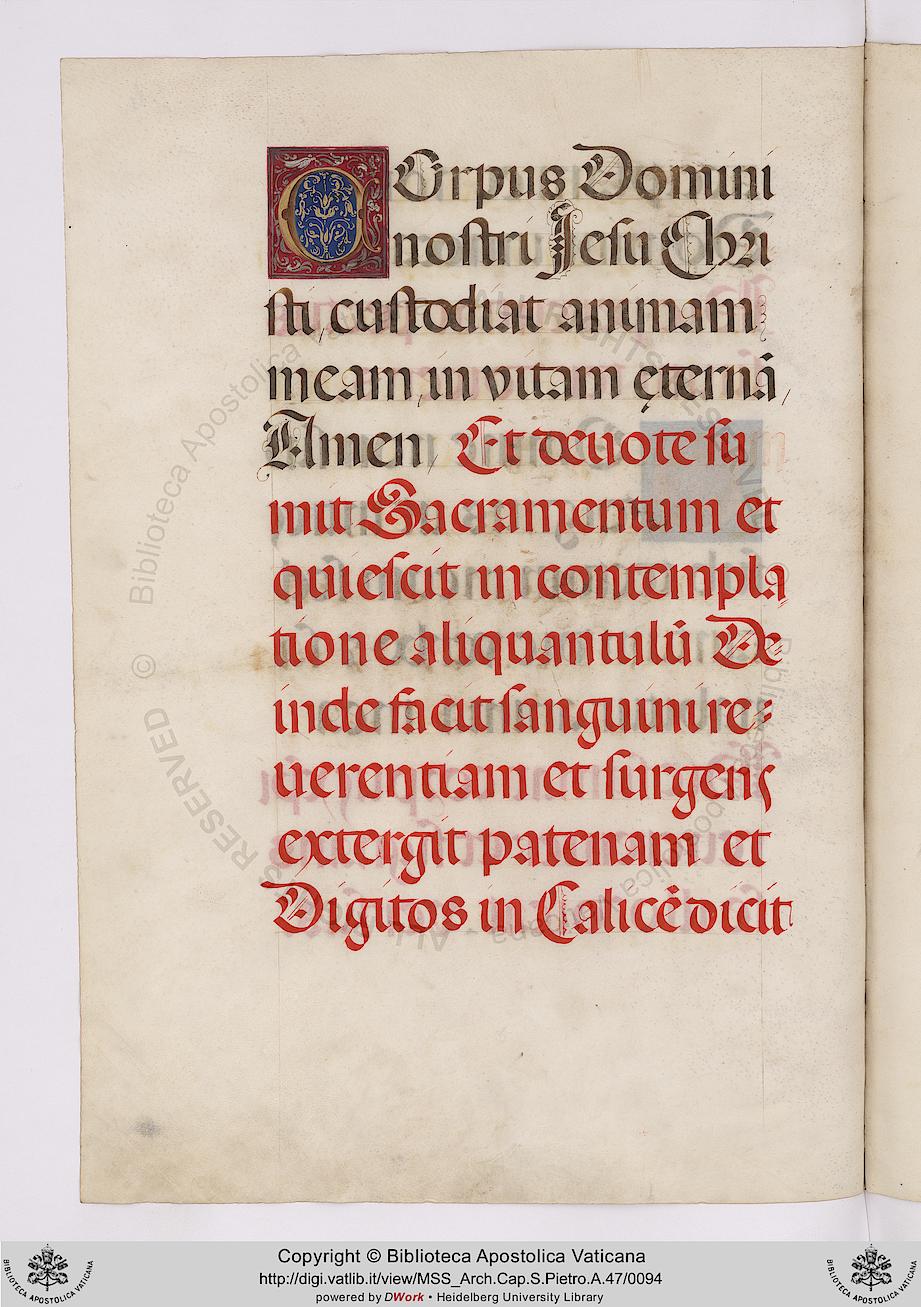 COrpus Domini
nostri Jesu Chri
sti, custodiat animam
meam, in vitam ęternā,
Amen, Et deuote su
mit Sacramentum et
quiescit in contempla
tione aliquantulū De
inde facit sanguini re-
uerentiam et surgens
extergit patenam et
Digitos in Calicē dicit
Copyright © Biblioteca Apostolica Vaticana
http://digi.vatlib.it/view/MSS_Arch.Cap.S.Pietro.A.47/0094
powered by DWork • Heidelberg University Library
BIBLIOTECA APOSTOLICA VATICANA
BIBLIOTECA APOSTOLICA VATICANA